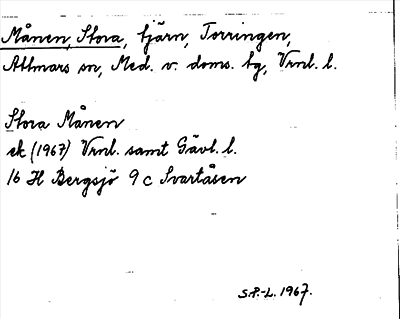 Månen, Stora, tjärn, Torringen,
Attmars sn, Med. v. doms. tg, Vrnl. l.
Stora Månen
ek (1967) Vrnl. samt Gävl. l.
16 H Bergsjö 9 c Svartåsen
S.P.-L. 1967.